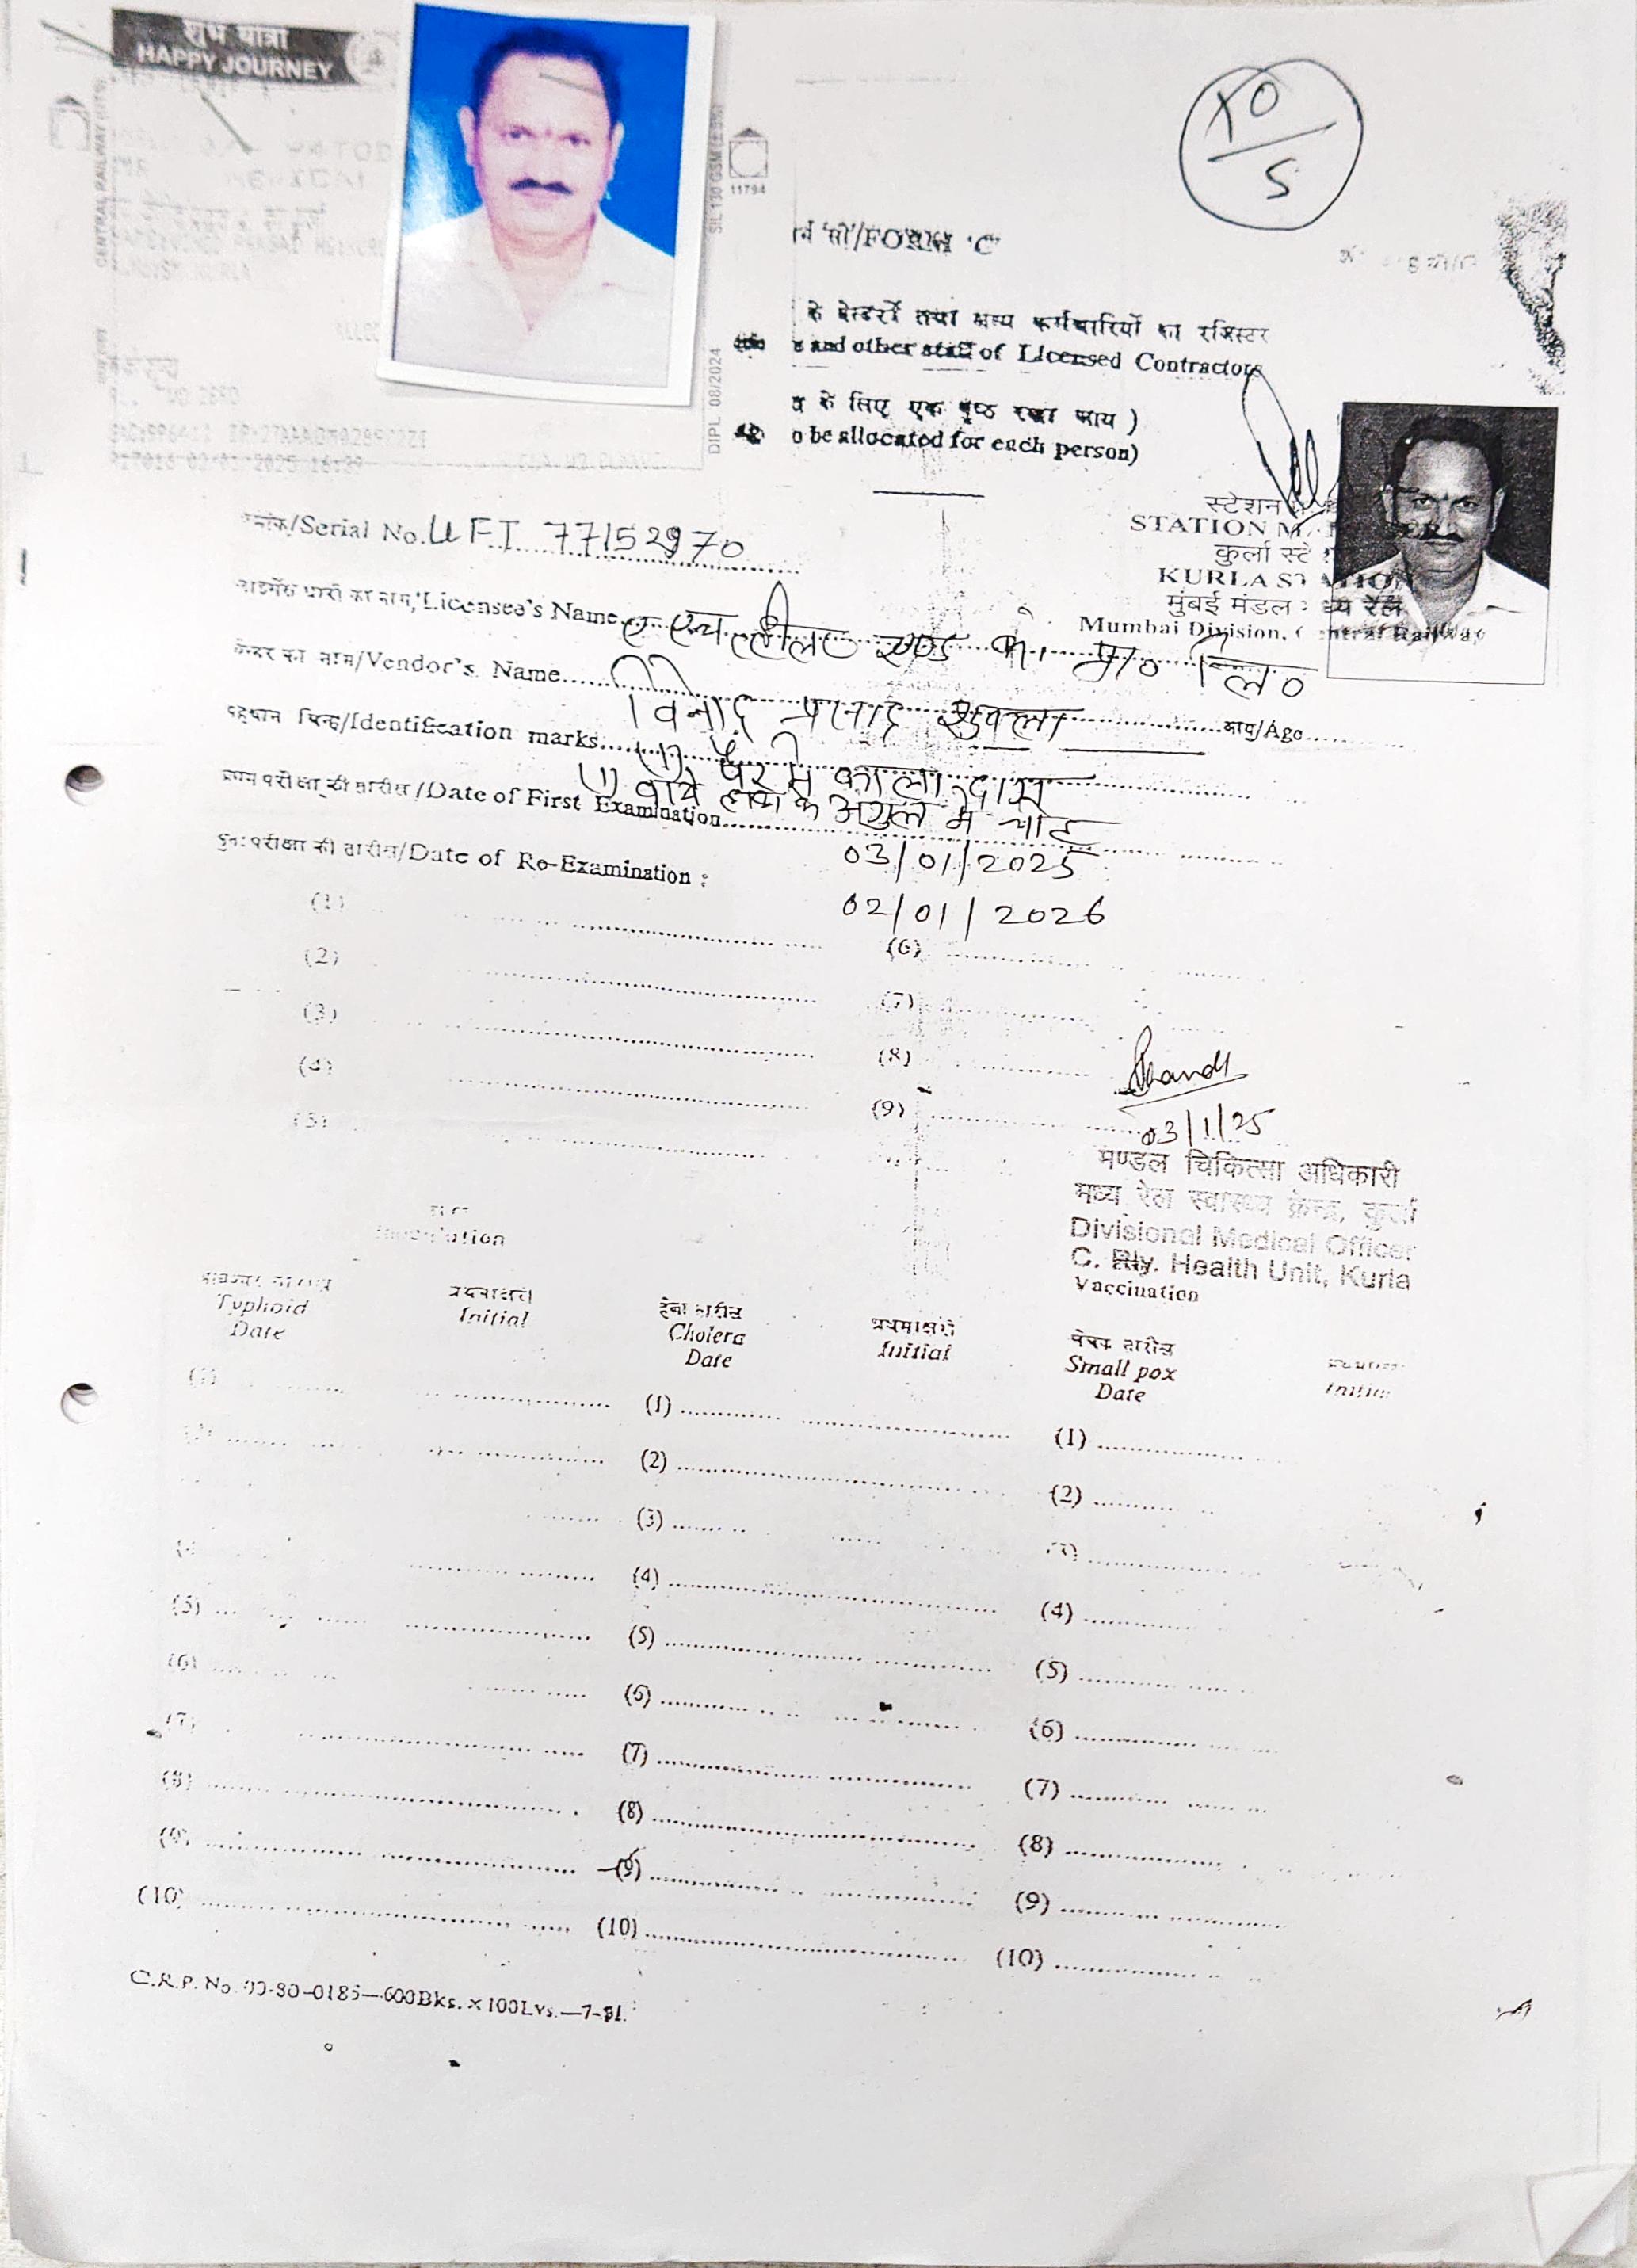 शुभ यात्रा
HAPPY JOURNEY
CENTRAL RAILWAY
SIL 130 GSM
11794
DIPL 08/2024
10/5
/FORM 'C'
के वेन्डरों तथा अन्य कर्मचारियों का रजिस्टर
and other staff of Licensed Contractors
के लिए एक पृष्ठ रखा जाय )
o be allocated for each person)
स्टेशन
STATION
कुर्ला
KURLA STATION
मुंबई मंडल मध्य रेल
Mumbai Division, Central Railway
/Serial No. UFI 77152970
/Licensee's Name ए एच व्हीलर एण्ड कं. प्रा० लि०
वेन्डर का नाम/Vendor's Name विनोद प्रसाद शुक्ला
आयु/Age
पहचान चिन्ह/Identification marks (1) पैर में काला दाग
प्रथम परीक्षा की तारीख/Date of First Examination
बाये हाथ के अंगुल में चोट
03/01/2025
पुनः परीक्षा की तारीख/Date of Re-Examination :
02/01/2026
(1) (6)
(2) (7)
(3) (8)
(4) (9)
(5)
03/1/25
मण्डल चिकित्सा अधिकारी
मध्य रेल स्वास्थ्य केन्द्र, कुर्ला
Divisional Medical Officer
C. Rly. Health Unit, Kurla
Inoculation
Vaccination
Typhoid Date
Initial
Cholera Date
प्रथमाक्षरी
Initial
चेचक तारीख
Small pox Date
Initial
(1) (1) (1)
(2) (2) (2)
(3) (3)
(4) (4) (4)
(5) (5) (5)
(6) (6) (6)
(7) (7) (7)
(8) (8) (8)
(9) (9) (9)
(10) (10) (10)
C.R.P. No. 90-80-0185—600Bks.×100Lvs.—7-81.